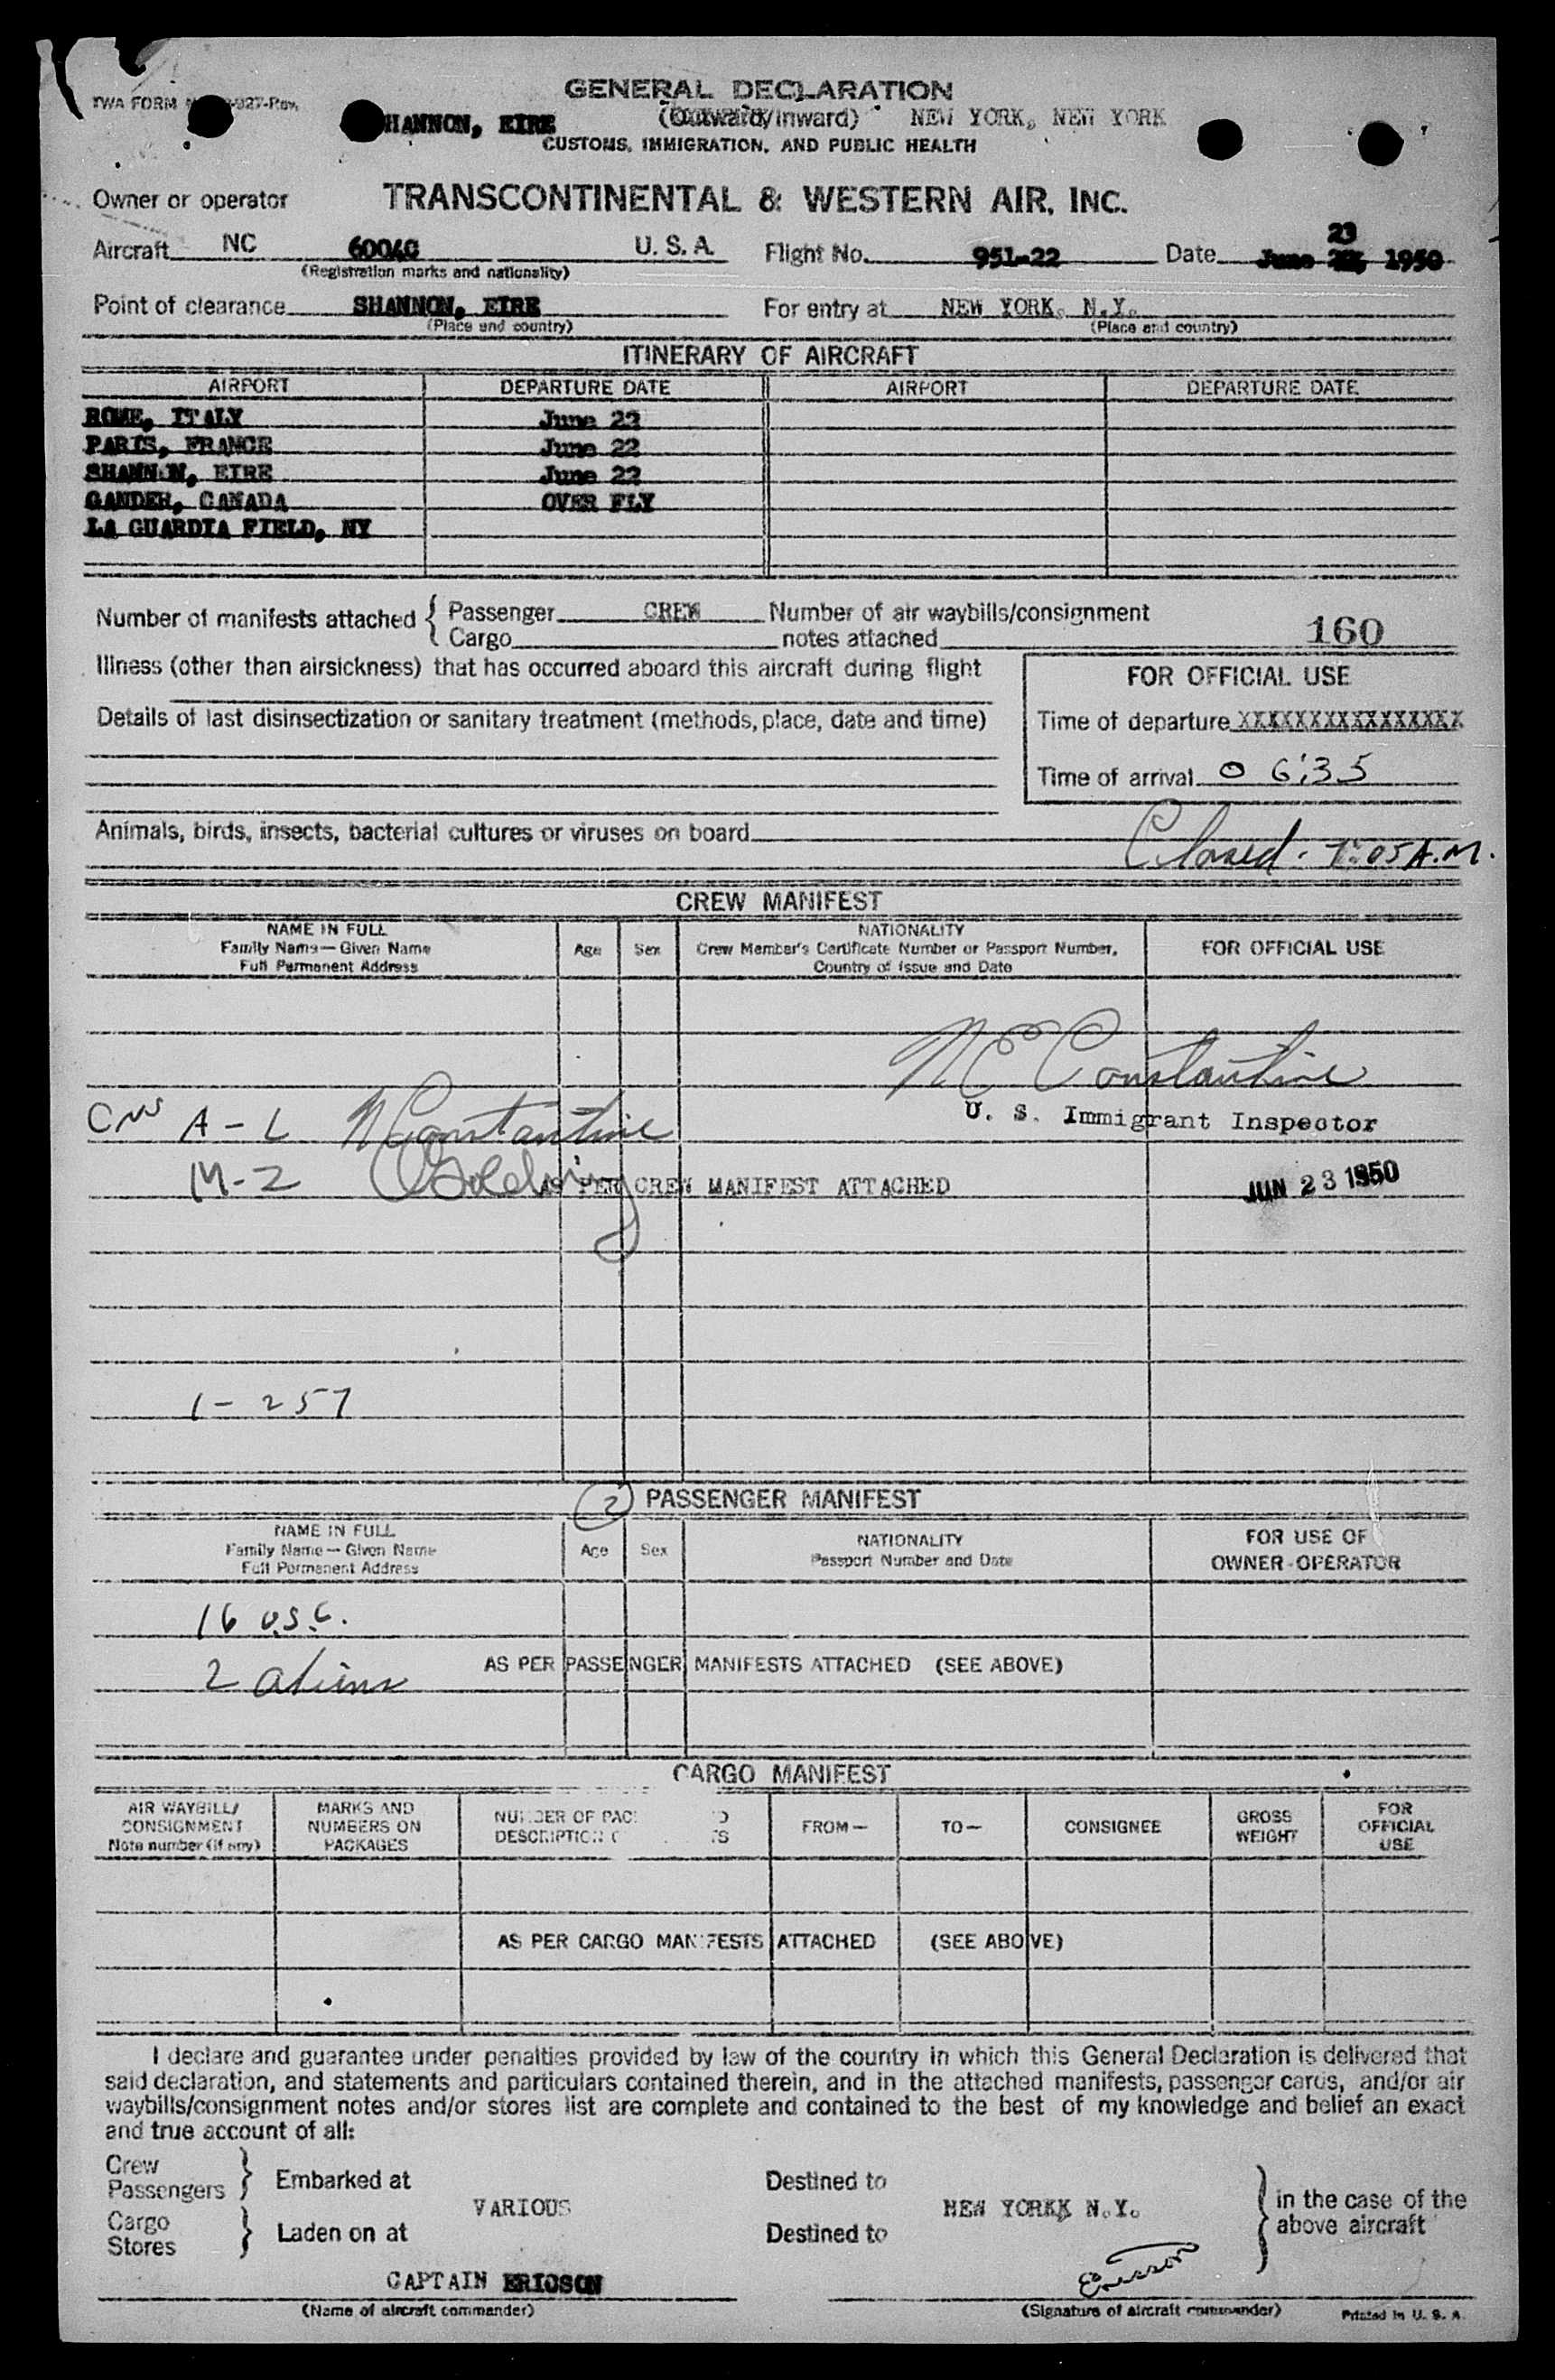 GENERAL DECLARATION
TWA FORM -927-Rev.
HANNON, EIRE (Outward/Inward) NEW YORK, NEW YORK
CUSTOMS, IMMIGRATION, AND PUBLIC HEALTH
Owner or operator TRANSCONTINENTAL & WESTERN AIR, INC.
23
Aircraft NC 6004C U. S. A. Flight No. 951-22 Date June 1950
(Registration marks and nationality)
Point of clearance SHANNON, EIRE For entry at NEW YORK, N.Y.
(Place and country) (Place and country)
ITINERARY OF AIRCRAFT
AIRPORT DEPARTURE DATE AIRPORT DEPARTURE DATE
ROME, ITALY June 22
PARIS, FRANCE June 22
SHANNON, EIRE June 22
GANDER, CANADA OVER FLY
LA GUARDIA FIELD, NY
Number of manifests attached { Passenger CREW Number of air waybills/consignment
Cargo notes attached 160
Illness (other than airsickness) that has occurred aboard this aircraft during flight
FOR OFFICIAL USE
Details of last disinsectization or sanitary treatment (methods, place, date and time)
Time of departure XXXXXXXXXXXXXXXX
Time of arrival 06:35
Animals, birds, insects, bacterial cultures or viruses on board
Closed - 7:05 A.M.
CREW MANIFEST
NAME IN FULL NATIONALITY
Family Name — Given Name Age Sex Crew Member's Certificate Number or Passport Number, FOR OFFICIAL USE
Full Permanent Address Country of Issue and Date
N E Constantine
CNS A - L N Constantine U. S. Immigrant Inspector
M-Z AS PER CREW MANIFEST ATTACHED JUN 23 1950
1 - 257
(2) PASSENGER MANIFEST
NAME IN FULL NATIONALITY FOR USE OF
Family Name — Given Name Age Sex Passport Number and Date OWNER-OPERATOR
Full Permanent Address
16 U.S.C.
2 aliens AS PER PASSENGER MANIFESTS ATTACHED (SEE ABOVE)
CARGO MANIFEST
AIR WAYBILL/ MARKS AND FOR
CONSIGNMENT NUMBERS ON NUMBER OF PAC FROM — TO — CONSIGNEE GROSS OFFICIAL
Note number (if any) PACKAGES DESCRIPTION WEIGHT USE
AS PER CARGO MANIFESTS ATTACHED (SEE ABOVE)
I declare and guarantee under penalties provided by law of the country in which this General Declaration is delivered that
said declaration, and statements and particulars contained therein, and in the attached manifests, passenger cards, and/or air
waybills/consignment notes and/or stores list are complete and contained to the best of my knowledge and belief an exact
and true account of all:
Crew
Passengers } Embarked at Destined to
VARIOUS NEW YORKK N.Y. } in the case of the
above aircraft
Cargo
Stores } Laden on at Destined to
CAPTAIN ERICSON Ericson
(Name of aircraft commander) (Signature of aircraft commander) Printed in U. S. A.